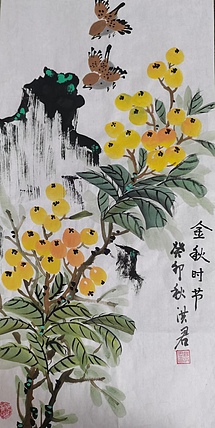 金秋时节
癸卯秋洪君